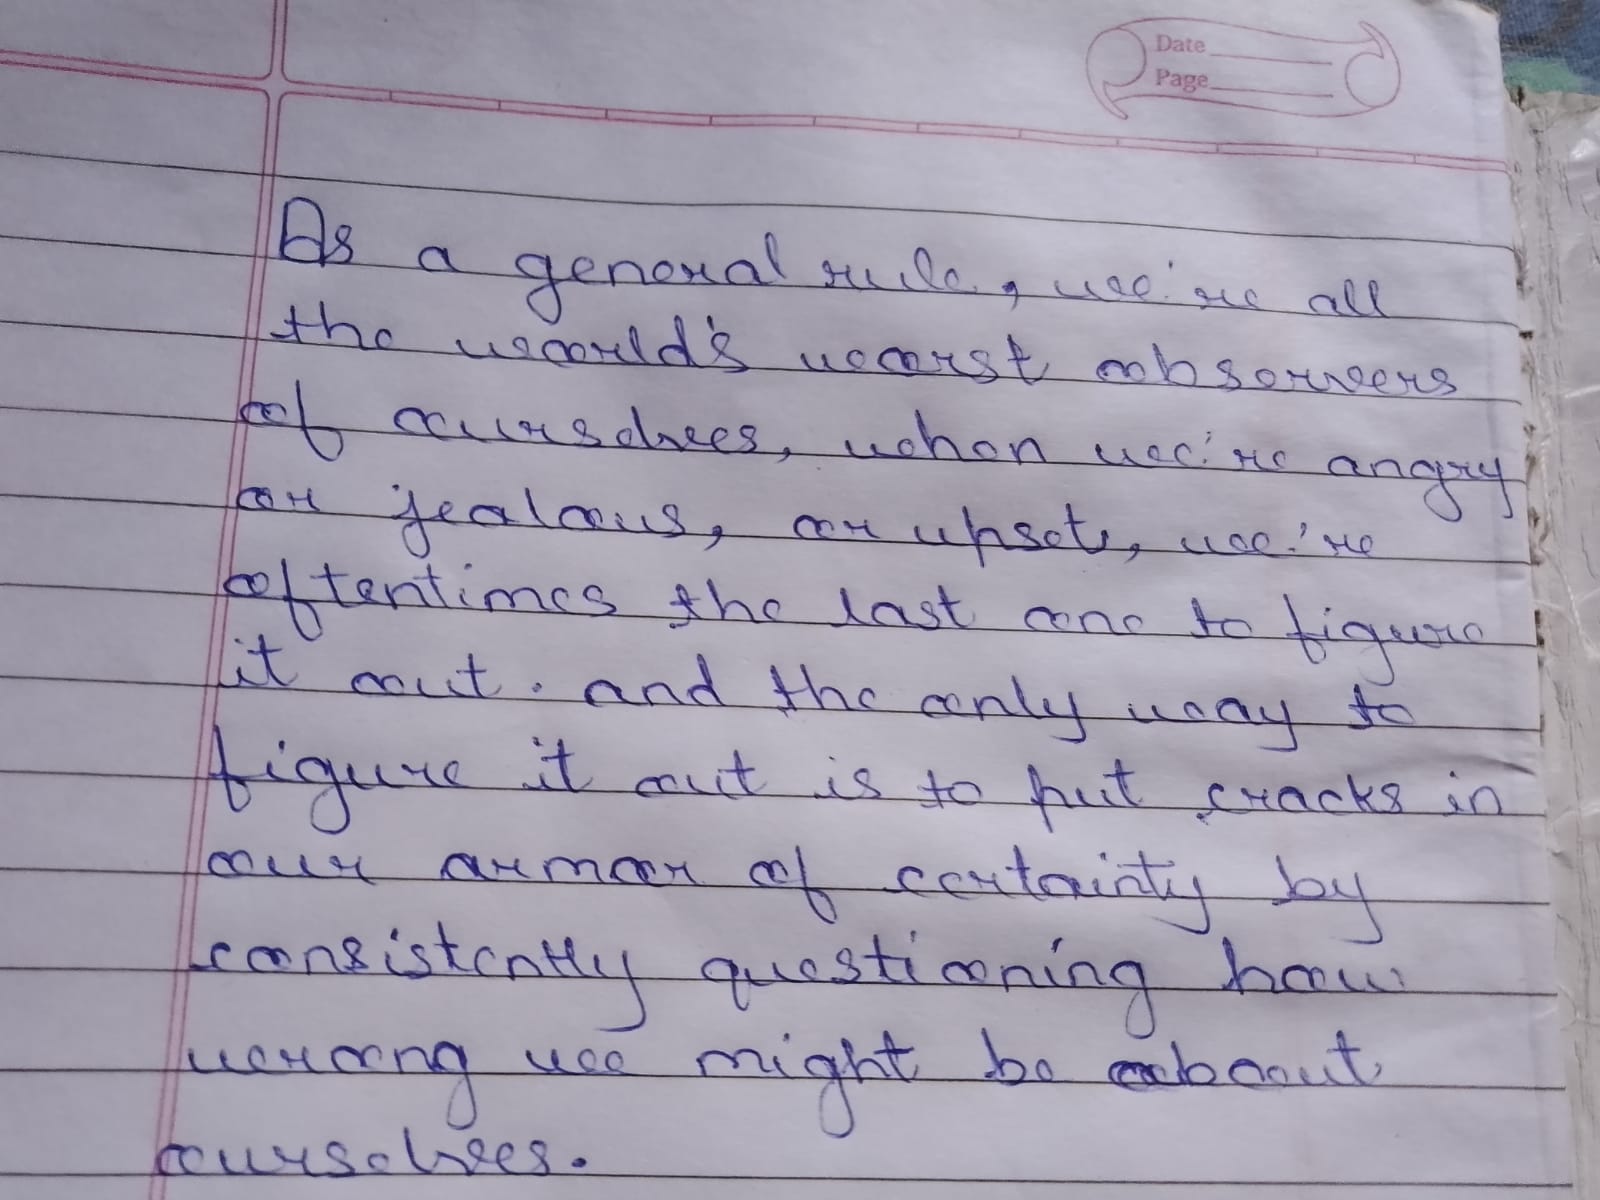 Date
Page
As a general rule, we're all
the world's worst observers
of ourselves, when we're angry
or jealous, or upset, we're
oftentimes the last one to figure
it out. and the only way to
figure it out is to put cracks in
our armor of certainty by
consistently questioning how
wrong we might be about
ourselves.